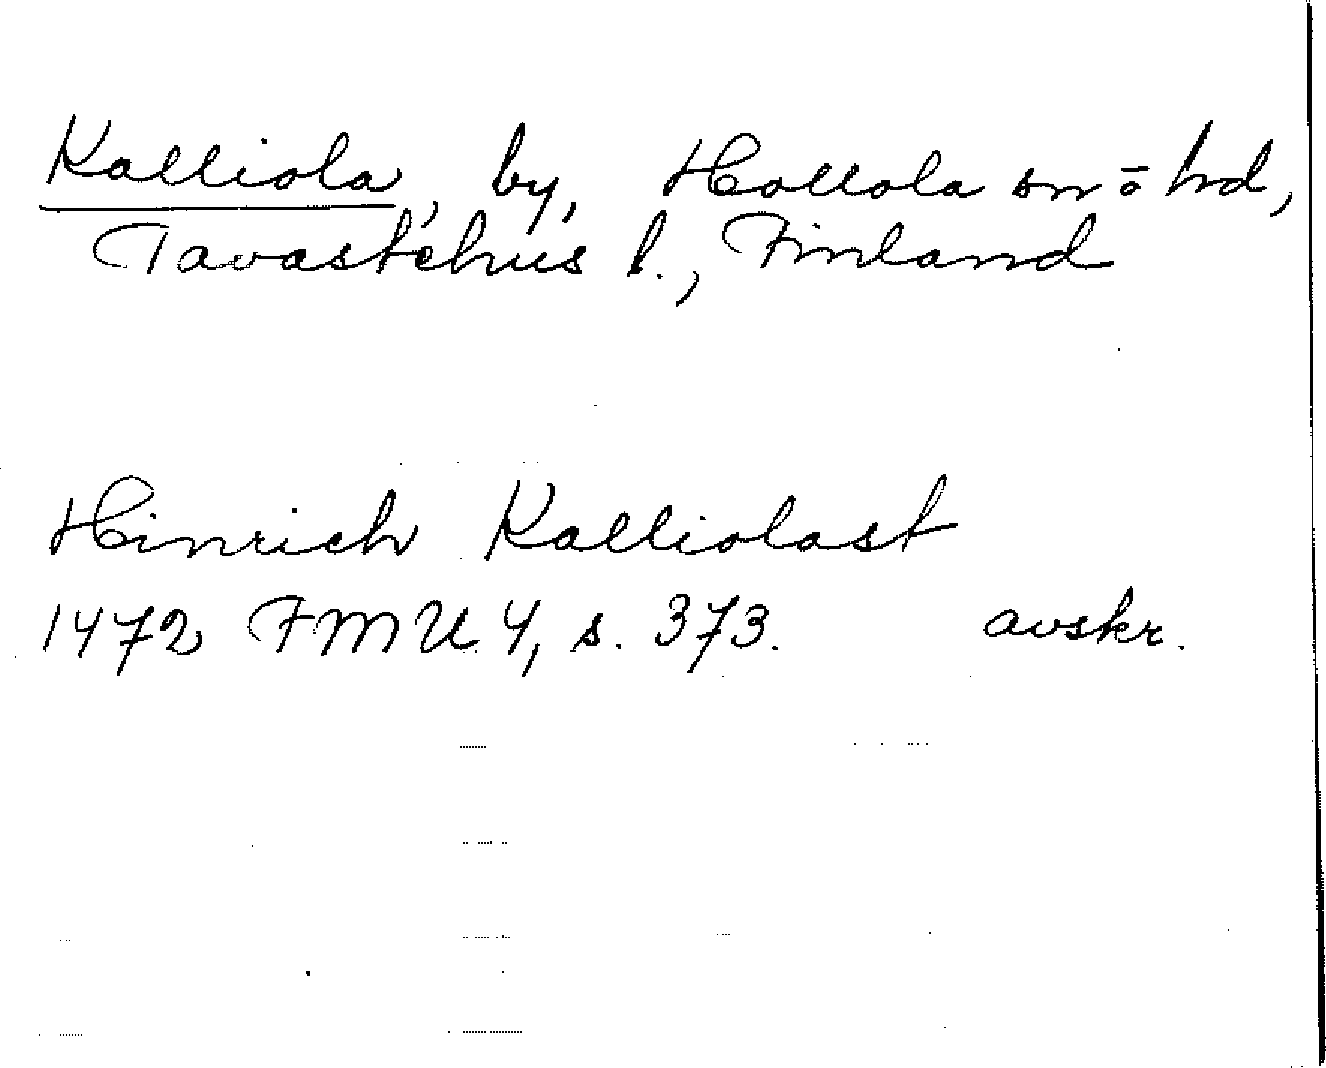 Kalliola, by, Hollola sn o hd,
Tavastehus l., Finland
Hinrich Kalliolast
1472 FMU 4, s. 373. avskr.